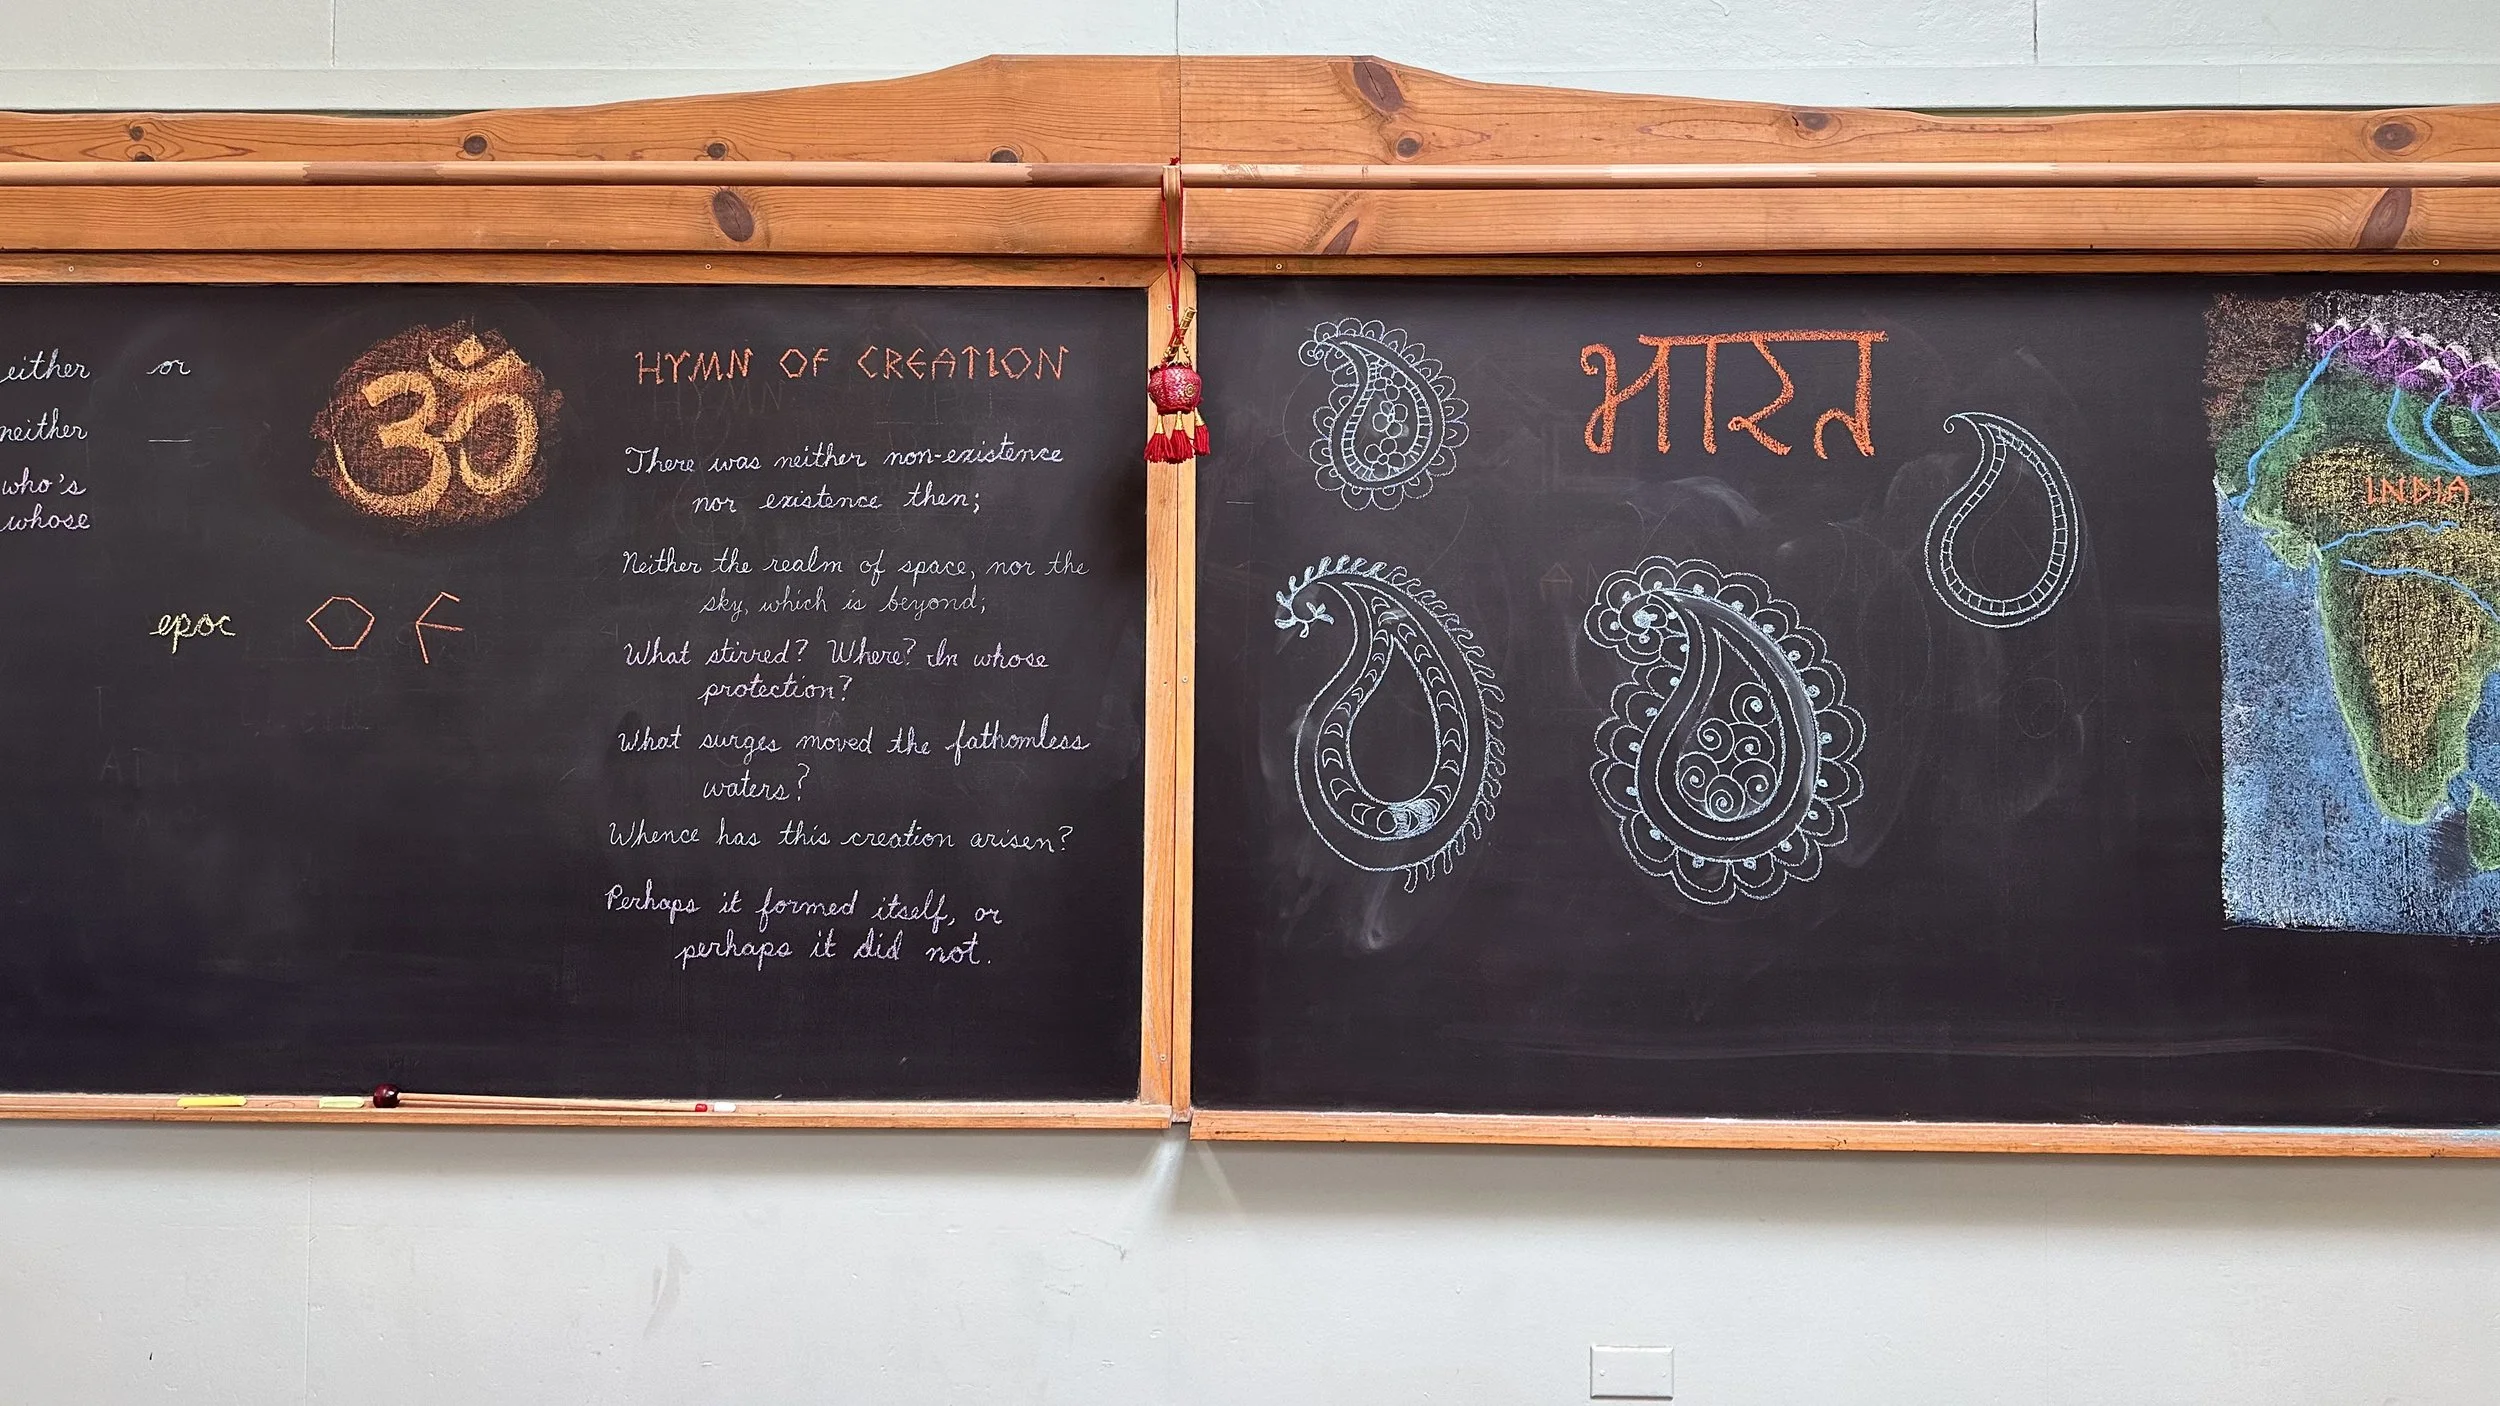 either or
neither
who's
whose
ॐ
epoc O F
HYMN OF CREATION
There was neither non-existence
nor existence then;
Neither the realm of space, nor the
sky, which is beyond;
What stirred? Where? In whose
protection?
What surges moved the fathomless
waters?
Whence has this creation arisen?
Perhaps it formed itself, or
perhaps it did not.
भारत
INDIA